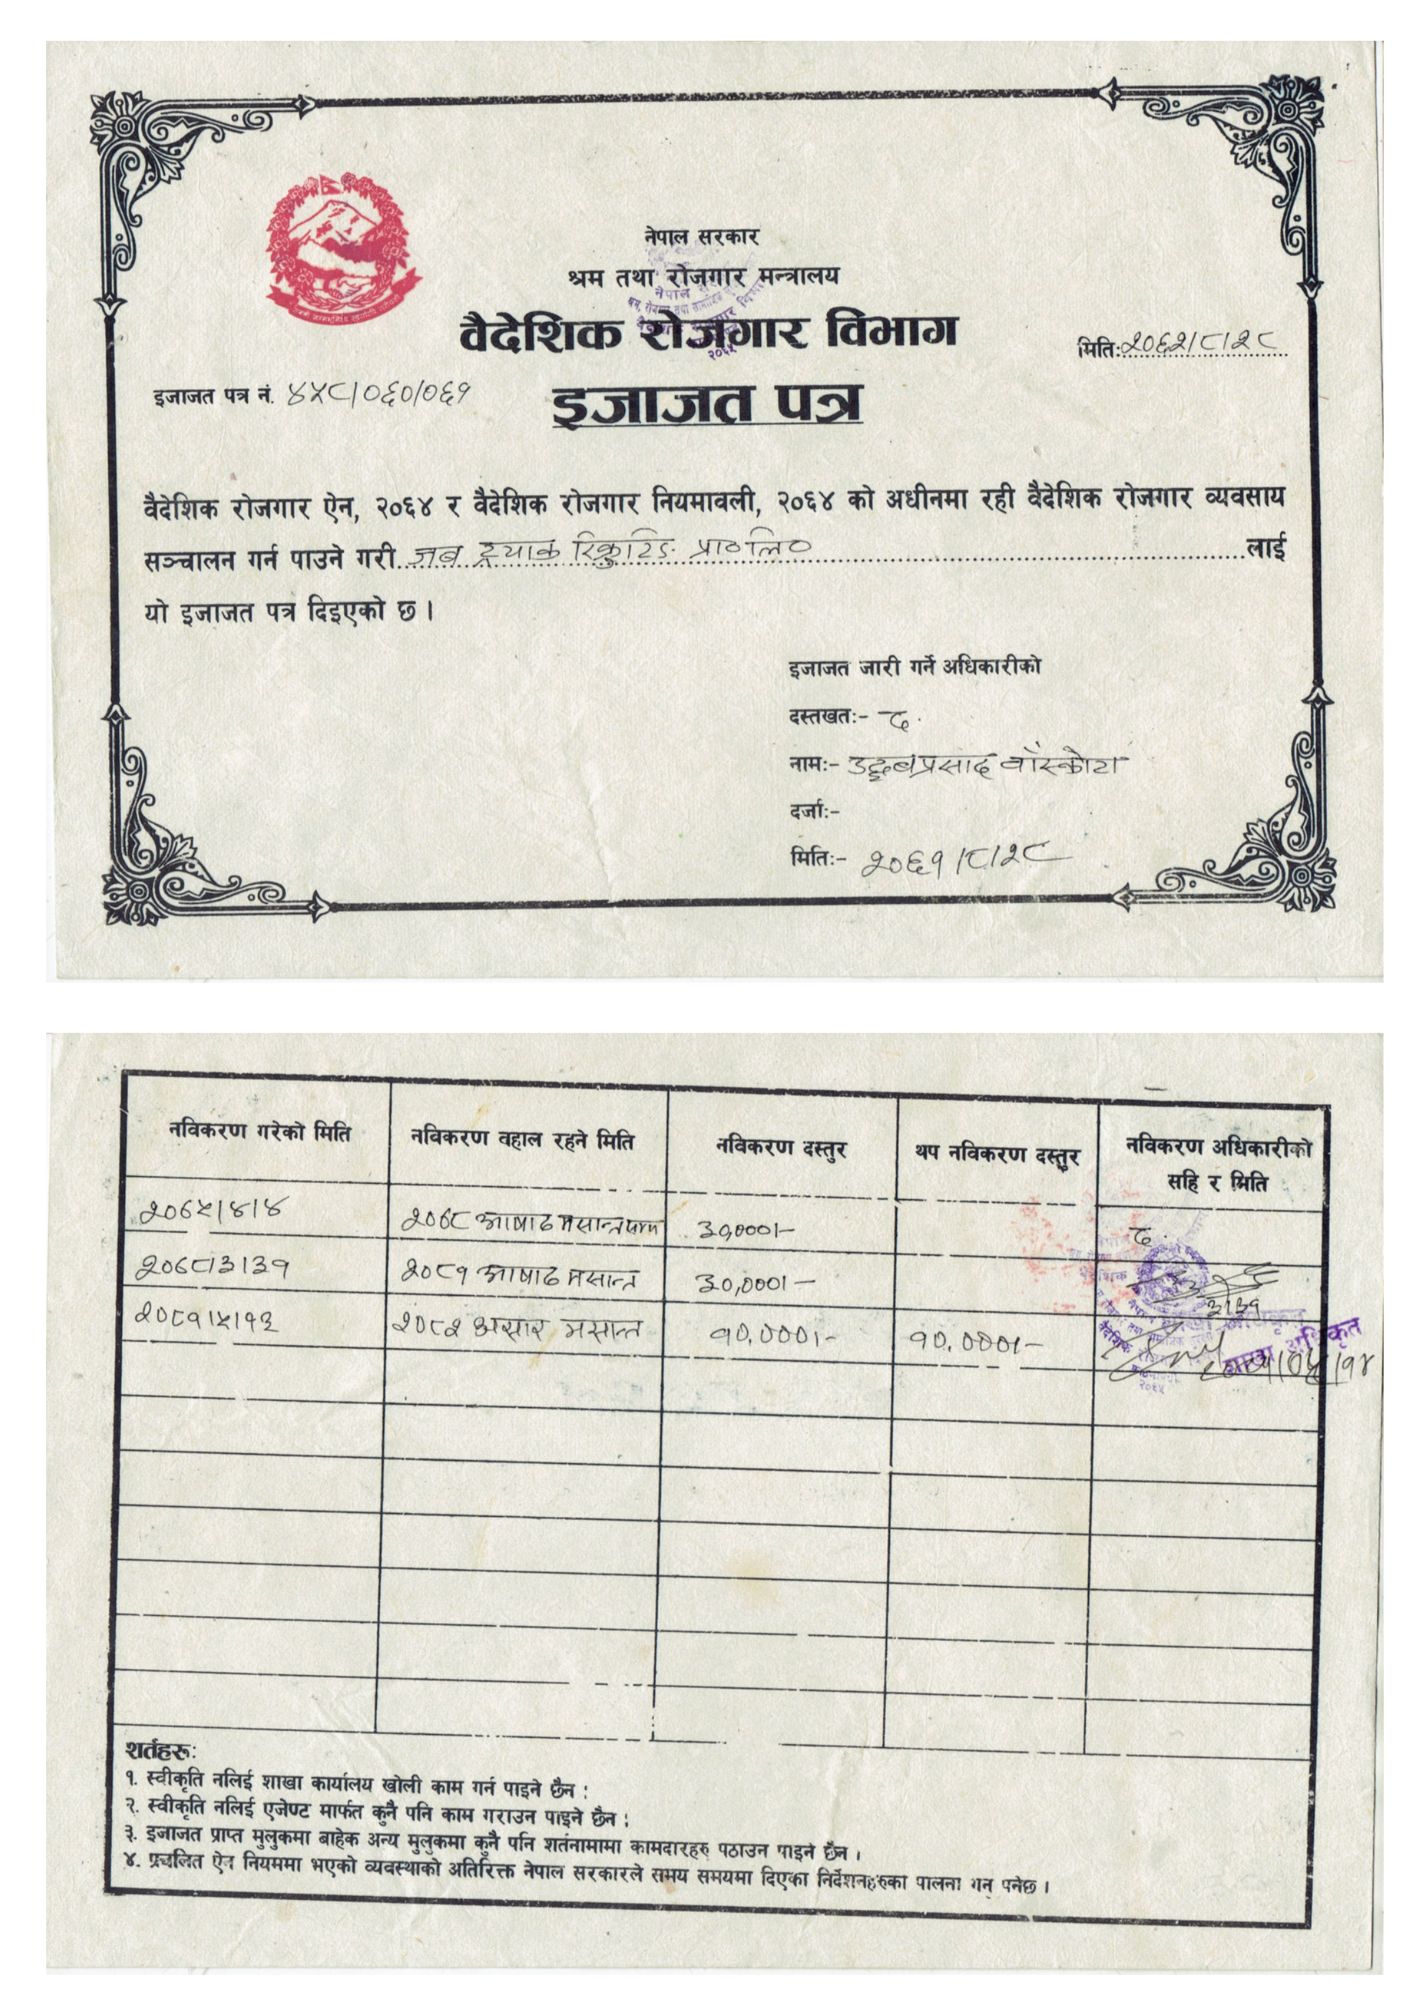 नेपाल सरकार
श्रम तथा रोजगार मन्त्रालय
वैदेशिक रोजगार विभाग
मिति: २०६२/८/२८
इजाजत पत्र नं. ४५८/०६०/०६१
इजाजत पत्र
वैदेशिक रोजगार ऐन, २०६४ र वैदेशिक रोजगार नियमावली, २०६४ को अधीनमा रही वैदेशिक रोजगार व्यवसाय
सञ्चालन गर्न पाउने गरी जब ट्र्याक रिक्रुटिङ प्रा०लि० लाई
यो इजाजत पत्र दिइएको छ ।
इजाजत जारी गर्ने अधिकारीको
दस्तखतः- द.
नामः- उद्धवप्रसाद बाँस्कोटा
दर्जाः-
मितिः- २०६१/८/२८
नविकरण गरेको मिति नविकरण वहाल रहने मिति नविकरण दस्तुर थप नविकरण दस्तुर नविकरण अधिकारीको
सहि र मिति
२०६५/४/४ आषाढ मसान्त ३०,०००/- द.
२०७८/३/३१ २०८१ आषाढ मसान्त ३०,०००/-
३/३१
२०८१/५/१३ २०८२ असार मसान्त १०,०००/- १०,०००/-
शाखा अधिकृत
शर्तहरू:
१. स्वीकृति नलिई शाखा कार्यालय खोली काम गर्न पाइने छैन ;
२. स्वीकृति नलिई एजेण्ट मार्फत कुनै पनि काम गराउन पाइने छैन ;
३. इजाजत प्राप्त मुलुकमा बाहेक अन्य मुलुकमा कुनै पनि शर्तनामामा कामदारहरु पठाउन पाइने छैन ।
४. प्रचलित ऐन नियममा भएको व्यवस्थाको अतिरिक्त नेपाल सरकारले समय समयमा दिएका निर्देशनहरुका पालना गर्नु पर्नेछ ।